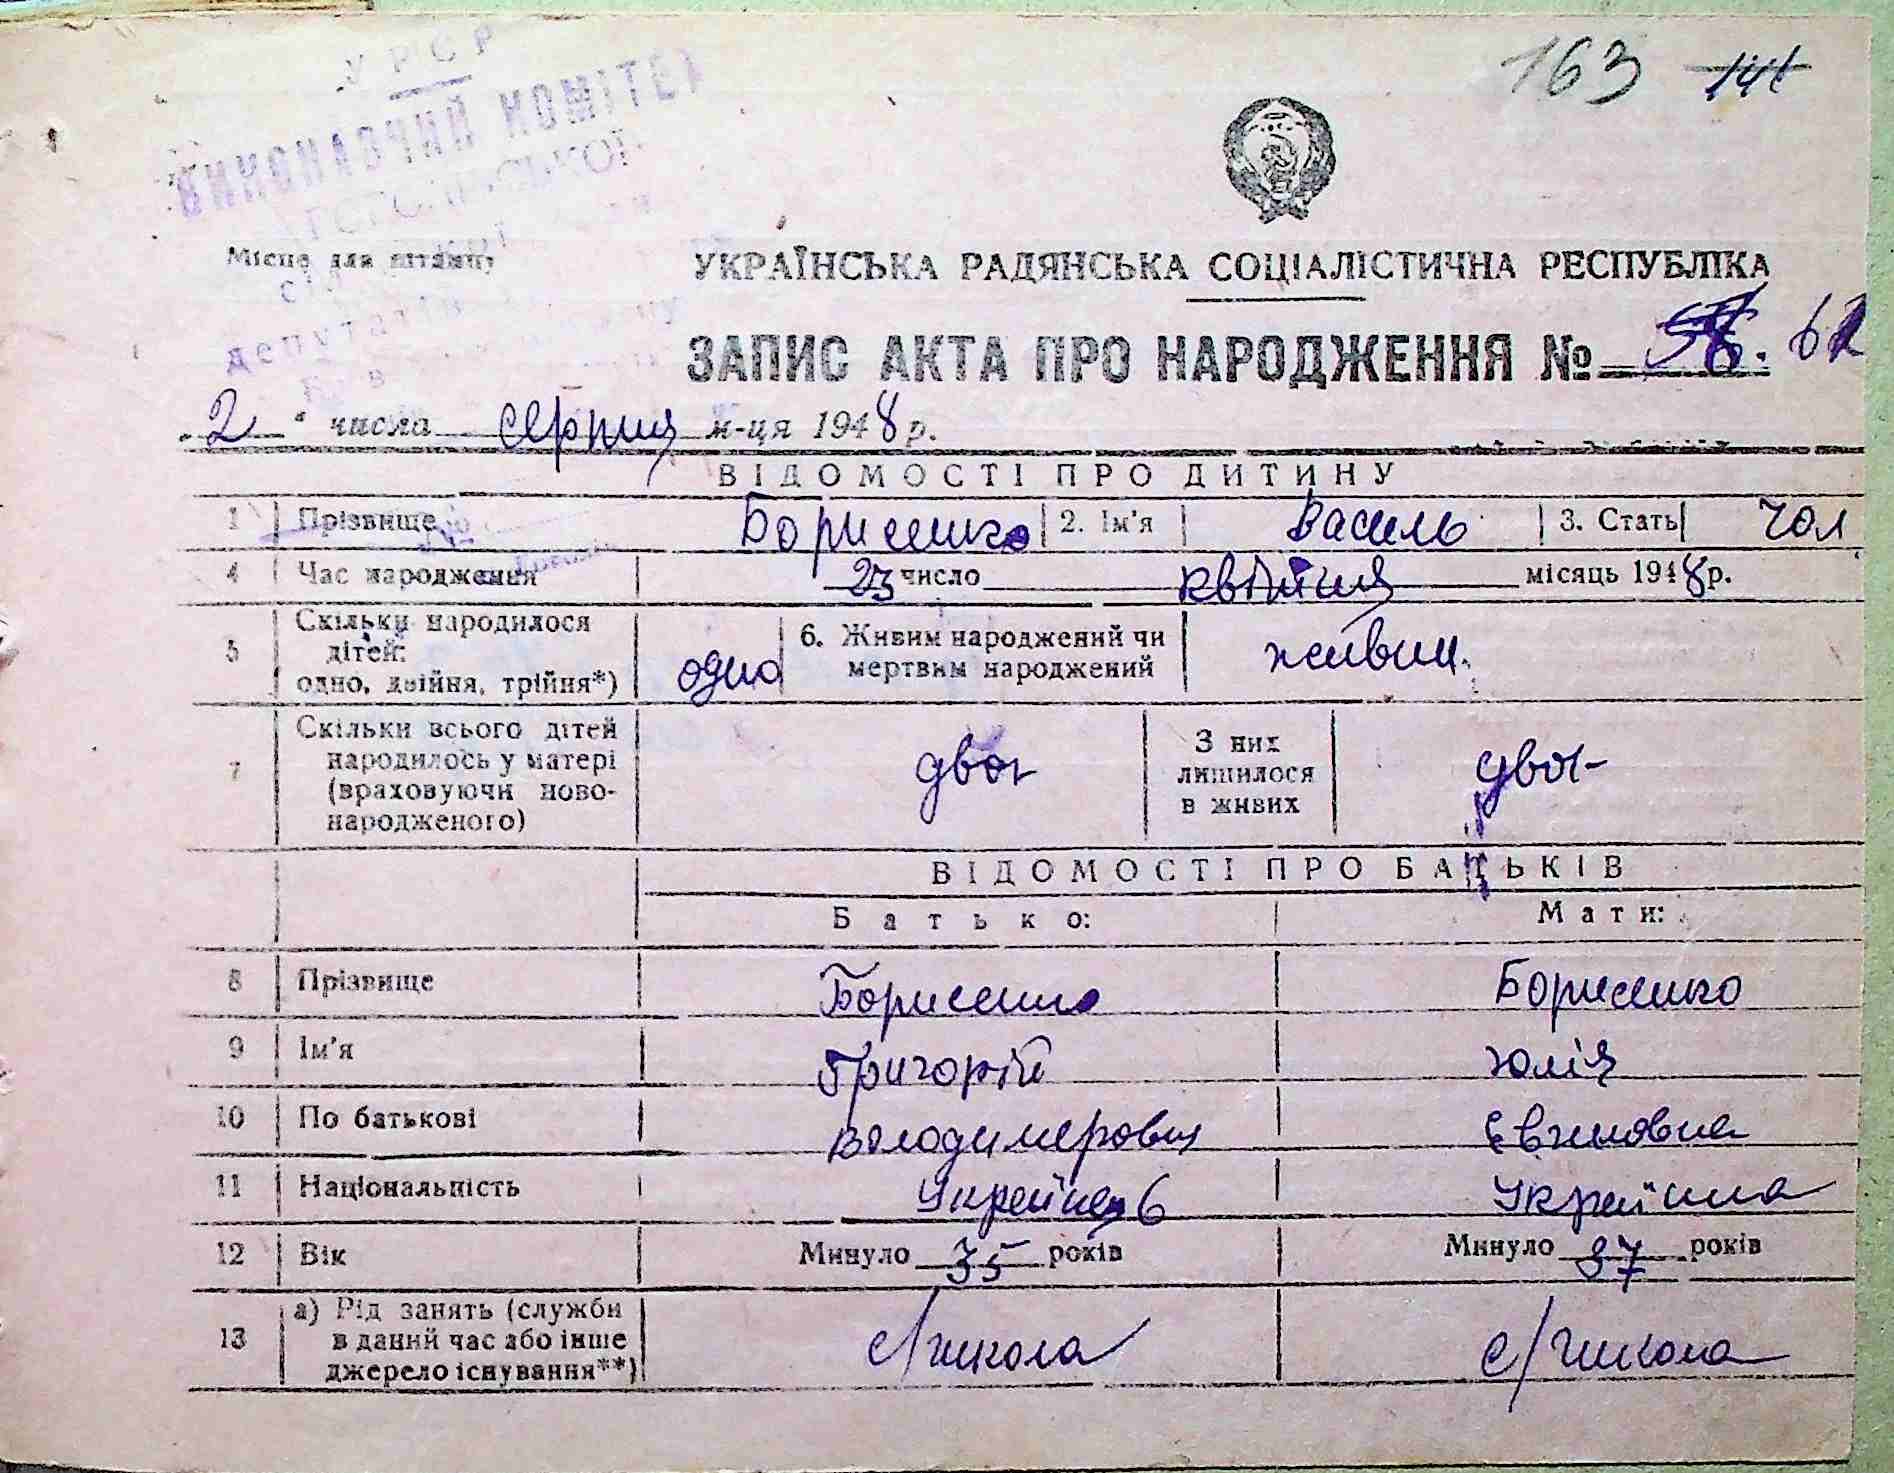 УРСР
ВИКОНАВЧИЙ КОМІТЕТ
163 141
Місце для штампу
депутатів
УКРАЇНСЬКА РАДЯНСЬКА СОЦІАЛІСТИЧНА РЕСПУБЛІКА
ЗАПИС АКТА ПРО НАРОДЖЕННЯ №
„2“ числа серпня м-ця 1948 р.
ВІДОМОСТІ ПРО ДИТИНУ
1 Прізвище Борисенко 2. Ім'я Василь 3. Стать чол
4 Час народження 23 число квітня місяць 1948 р.
5 Скільки народилося дітей: одно, двійня, трійня*) одно 6. Живим народжений чи мертвим народжений живим.
7 Скільки всього дітей народилось у матері (враховуючи новонародженого) двоє З них лишилося в живих двоє
ВІДОМОСТІ ПРО БАТЬКІВ
Батько: Мати:
8 Прізвище Борисенко Борисенко
9 Ім'я Григорій Юлія
10 По батькові Володимирович
11 Національність Українець Українка
12 Вік Минуло 35 років Минуло 37 років
13 а) Рід занять (служби в даний час або інше джерело існування**) с/школа с/школа